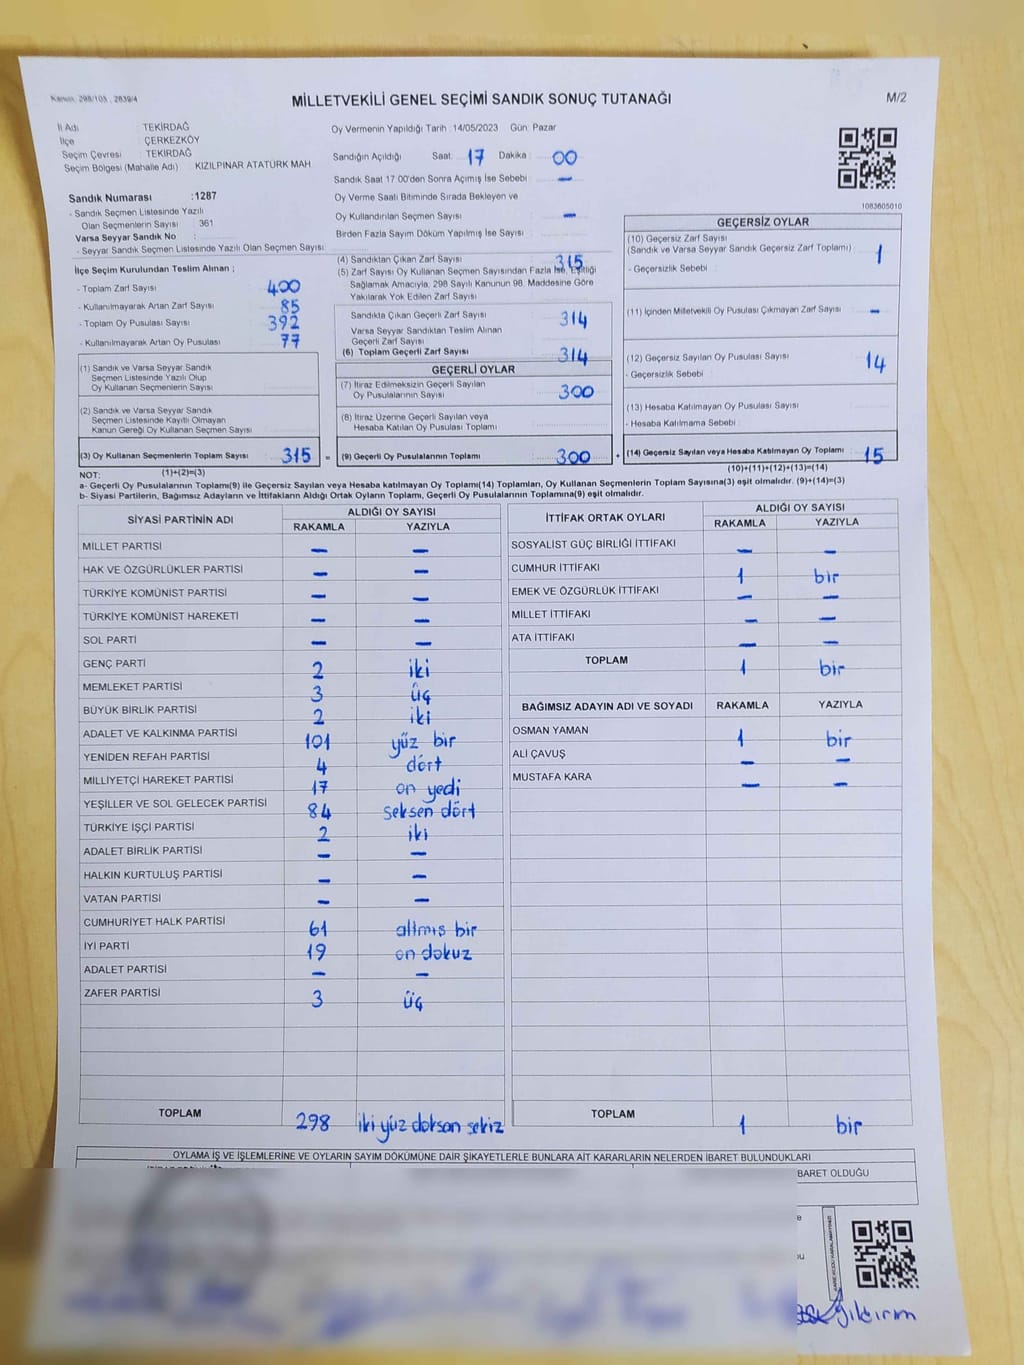 Kanun: 298/105 , 2839/4
MİLLETVEKİLİ GENEL SEÇİMİ SANDIK SONUÇ TUTANAĞI
M/2
İl Adı : TEKİRDAĞ
İlçe : ÇERKEZKÖY
Seçim Çevresi : TEKİRDAĞ
Seçim Bölgesi (Mahalle Adı) : KIZILPINAR ATATÜRK MAH
Sandık Numarası :1287
- Sandık Seçmen Listesinde Yazılı
Olan Seçmenlerin Sayısı : 361
Varsa Seyyar Sandık No :
- Seyyar Sandık Seçmen Listesinde Yazılı Olan Seçmen Sayısı :
Oy Vermenin Yapıldığı Tarih :14/05/2023 Gün: Pazar
Sandığın Açıldığı Saat: 17 Dakika : 00
Sandık Saat 17:00'den Sonra Açımış İse Sebebi : –
Oy Verme Saati Bitiminde Sırada Bekleyen ve
Oy Kullandırılan Seçmen Sayısı : –
Birden Fazla Sayım Döküm Yapılmış İse Sayısı :
1083605010
İlçe Seçim Kurulundan Teslim Alınan ;
- Toplam Zarf Sayısı : 400
- Kullanılmayarak Artan Zarf Sayısı : 85
- Toplam Oy Pusulası Sayısı : 392
- Kullanılmayarak Artan Oy Pusulası : 77
(1) Sandık ve Varsa Seyyar Sandık
Seçmen Listesinde Yazılı Olup
Oy Kullanan Seçmenlerin Sayısı :
(2) Sandık ve Varsa Seyyar Sandık
Seçmen Listesinde Kayıtlı Olmayan
Kanun Gereği Oy Kullanan Seçmen Sayısı :
(3) Oy Kullanan Seçmenlerin Toplam Sayısı : 315
(1)+(2)=(3)
(4) Sandıktan Çıkan Zarf Sayısı : 315
(5) Zarf Sayısı Oy Kullanan Seçmen Sayısından Fazla İse, Eşitliği
Sağlamak Amacıyla, 298 Sayılı Kanunun 98. Maddesine Göre
Yakılarak Yok Edilen Zarf Sayısı :
Sandıkta Çıkan Geçerli Zarf Sayısı : 314
Varsa Seyyar Sandıktan Teslim Alınan
Geçerli Zarf Sayısı :
(6) Toplam Geçerli Zarf Sayısı : 314
GEÇERLİ OYLAR
(7) İtiraz Edilmeksizin Geçerli Sayılan
Oy Pusulasının Sayısı : 300
(8) İtiraz Üzerine Geçerli Sayılan veya
Hesaba Katılan Oy Pusulası Toplamı :
= (9) Geçerli Oy Pusulalarının Toplamı : 300
GEÇERSİZ OYLAR
(10) Geçersiz Zarf Sayısı
(Sandık ve Varsa Seyyar Sandık Geçersiz Zarf Toplamı) : 1
- Geçersizlik Sebebi :
(11) İçinden Milletvekili Oy Pusulası Çıkmayan Zarf Sayısı : –
(12) Geçersiz Sayılan Oy Pusulası Sayısı : 14
- Geçersizlik Sebebi :
(13) Hesaba Katılmayan Oy Pusulası Sayısı :
- Hesaba Katılmama Sebebi :
+ (14) Geçersiz Sayılan veya Hesaba Katılmayan Oy Toplamı : 15
(10)+(11)+(12)+(13)=(14)
NOT:
a- Geçerli Oy Pusulalarının Toplamı(9) ile Geçersiz Sayılan veya Hesaba Katılmayan Oy Toplamı(14) Toplamları, Oy Kullanan Seçmenlerin Toplam Sayısına(3) eşit olmalıdır. (9)+(14)=(3)
b- Siyasi Partilerin, Bağımsız Adayların ve İttifakların Aldığı Ortak Oyların Toplamı, Geçerli Oy Pusulalarının Toplamına(9) eşit olmalıdır.
SİYASİ PARTİNİN ADI ALDIĞI OY SAYISI
RAKAMLA YAZIYLA
MİLLET PARTİSİ – –
HAK VE ÖZGÜRLÜKLER PARTİSİ – –
TÜRKİYE KOMÜNİST PARTİSİ – –
TÜRKİYE KOMÜNİST HAREKETİ – –
SOL PARTİ – –
GENÇ PARTİ 2 iki
MEMLEKET PARTİSİ 3 üç
BÜYÜK BİRLİK PARTİSİ 2 iki
ADALET VE KALKINMA PARTİSİ 101 yüz bir
YENİDEN REFAH PARTİSİ 4 dört
MİLLİYETÇİ HAREKET PARTİSİ 17 on yedi
YEŞİLLER VE SOL GELECEK PARTİSİ 84 seksen dört
TÜRKİYE İŞÇİ PARTİSİ 2 iki
ADALET BİRLİK PARTİSİ – –
HALKIN KURTULUŞ PARTİSİ – –
VATAN PARTİSİ – –
CUMHURİYET HALK PARTİSİ 61 altmış bir
İYİ PARTİ 19 on dokuz
ADALET PARTİSİ – –
ZAFER PARTİSİ 3 üç
TOPLAM 298 iki yüz doksan sekiz
İTTİFAK ORTAK OYLARI ALDIĞI OY SAYISI
RAKAMLA YAZIYLA
SOSYALİST GÜÇ BİRLİĞİ İTTİFAKI – –
CUMHUR İTTİFAKI 1 bir
EMEK VE ÖZGÜRLÜK İTTİFAKI – –
MİLLET İTTİFAKI – –
ATA İTTİFAKI – –
TOPLAM 1 bir
BAĞIMSIZ ADAYIN ADI VE SOYADI RAKAMLA YAZIYLA
OSMAN YAMAN 1 bir
ALİ ÇAVUŞ – –
MUSTAFA KARA – –
TOPLAM 1 bir
OYLAMA İŞ VE İŞLEMLERİNE VE OYLARIN SAYIM DÖKÜMÜNE DAİR ŞİKAYETLERLE BUNLARA AİT KARARLARIN NELERDEN İBARET BULUNDUKLARI
BARET OLDUĞU
Yıldırım